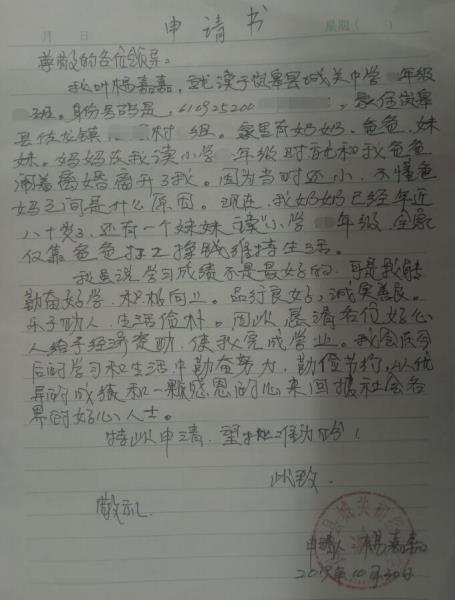 月 日 申请书 星期( )
尊敬的各位领导:
我叫杨嘉嘉,就读于岚皋县城关中学 年级
班。身份号码是,610925200 ,家住岚皋
县佐龙镇 村 组。家里有奶奶、爸爸、妹
妹。妈妈在我读小学 年级时就和我爸爸
闹着离婚离开了我。因为当时还小,不懂爸
妈之间是什么原因。现在,我奶奶已经年近
八十岁了,还有一个妹妹读小学 年级,全家
仅靠爸爸打工挣钱维持生活。
我虽说学习成绩不是最好的,可是我能
勤奋好学,积极向上。品行良好,诚实善良。
乐于助人,生活俭朴。因此,恳请各位好心
人给予经济资助,使我完成学业。我会在今
后的学习和生活中勤奋努力,勤俭节约,以优
异的成绩和一颗感恩的心来回报社会各
界的好心人士。
特此申请,望批准为盼!
此致
敬礼
申请人:杨嘉嘉
10月30日